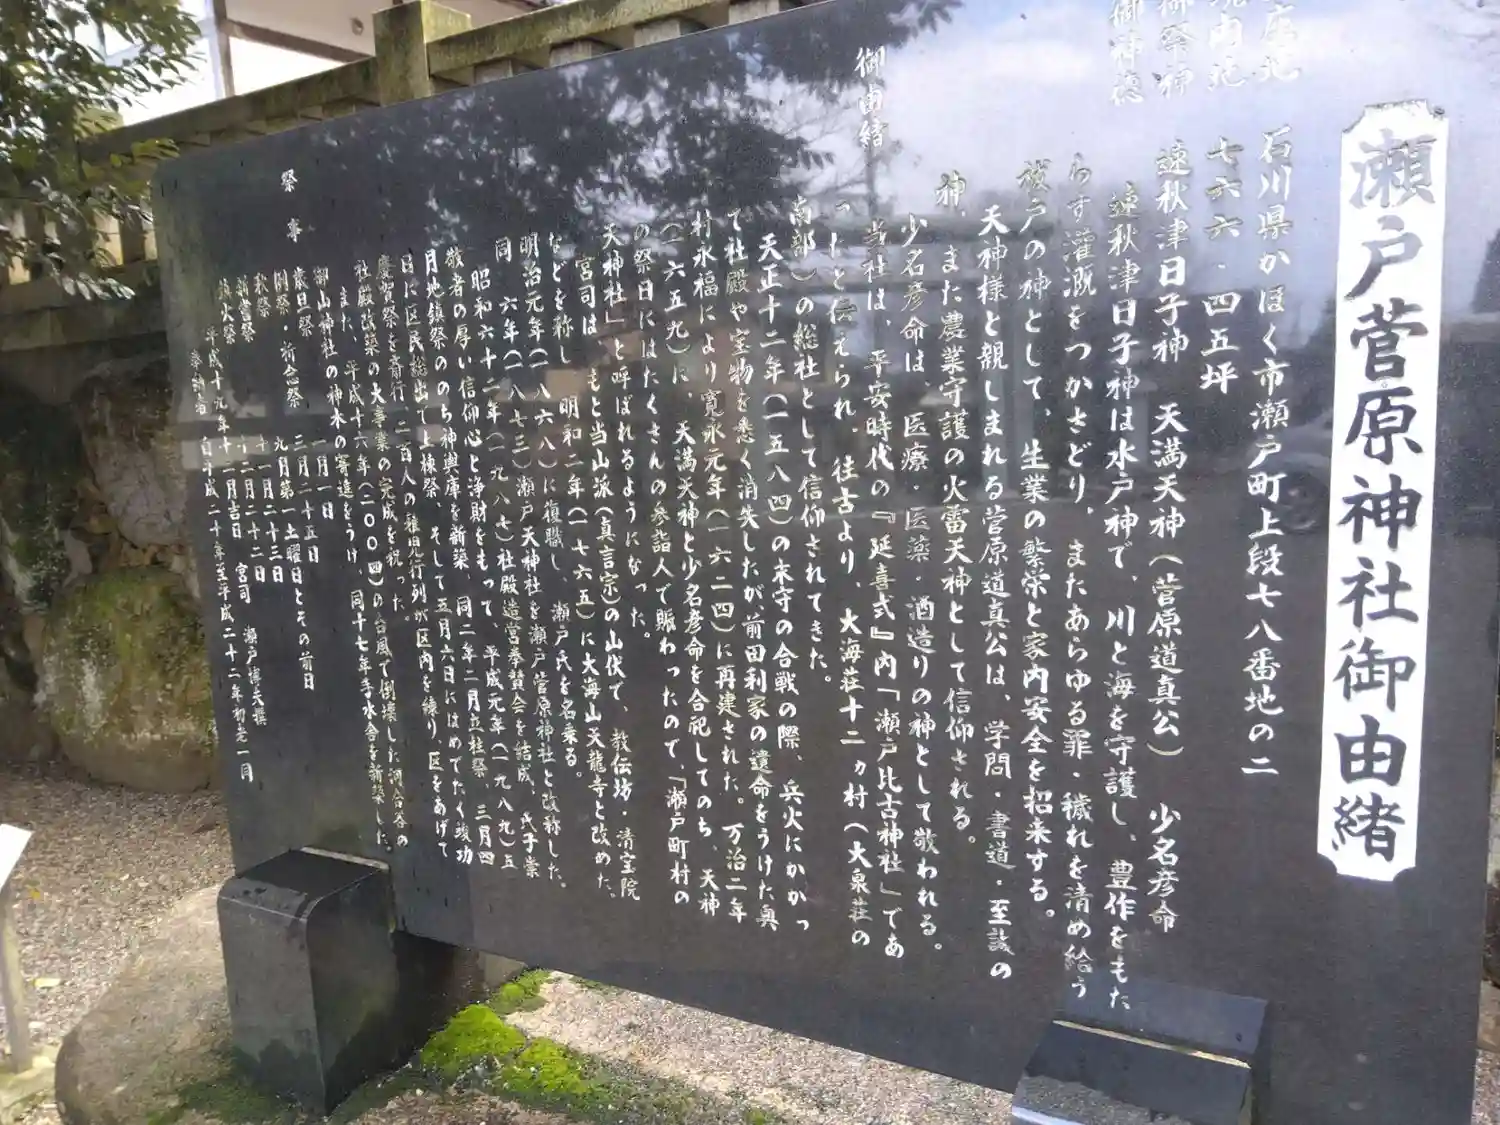 瀬戸菅原神社御由緒
石川県かほく市瀬戸町上段七八番地の二
境内地 七六六・四五坪
御祭神 速秋津日子神 天満天神(菅原道真公) 少名彦命
御神徳 速秋津日子神は水戸神で、川と海を守護し、豊作をもた
らす灌漑をつかさどり、またあらゆる罪・穢れを清め給う
祓戸の神として、生業の繁栄と家内安全を招来する。
天神様と親しまれる菅原道真公は、学問・書道・至誠の
神、また農業守護の火雷天神として信仰される。
少名彦命は、医療・医薬・酒造りの神として敬われる。
御由緒 当社は、平安時代の『延喜式』内「瀬戸比古神社」であ
ったと伝えられ、往古より、大海荘十二ヵ村(大泉荘の
南部)の総社として信仰されてきた。
天正十二年(一五八四)の末守の合戦の際、兵火にかかっ
て社殿や宝物を悉く消失したが、前田利家の遺命をうけた奥
村永福により寛永元年(一六二四)に再建された。万治二年
(一六五九)に、天満天神と少名彦命を合祀してのち、天神
の祭日にはたくさんの参詣人で賑わったので、「瀬戸町村の
天神社」と呼ばれるようになった。
宮司は、もと当山派(真言宗)の山伏で、教伝坊・清宝院
などを称し、明和二年(一七六五)に大海山天龍寺と改めた。
明治元年(一八六八)に復職し、瀬戸氏を名乗る。
同 六年(一八七三)瀬戸天神社を瀬戸菅原神社と改称した。
昭和六十二年(一九八七)社殿造営奉賛会を結成、氏子崇
敬者の厚い信仰心と浄財をもって、平成元年(一九八九)五
月地鎮祭ののち神輿庫を新築、同二年二月立柱祭、三月四
日に区民総出で上棟祭、そして五月六日にはめでたく竣功
慶賀祭を斎行、二百人の稚児行列が区内を練り、区をあげて
社殿改築の大事業の完成を祝った。
また、平成十六年(二〇〇四)の台風で倒壊した河合谷の
御山神社の神木の寄進をうけ、同十七年手水舎を新築した。
祭事 歳旦祭 一月一日
例祭・祈念祭 二月二十五日
秋祭 九月第一土曜日とその前日
新嘗祭 十一月二十三日
鎮火祭 十二月二十二日
平成十九年十二月吉日 宮司 瀬戸
奉納者 自平成二十年至平成二十二年初老一同